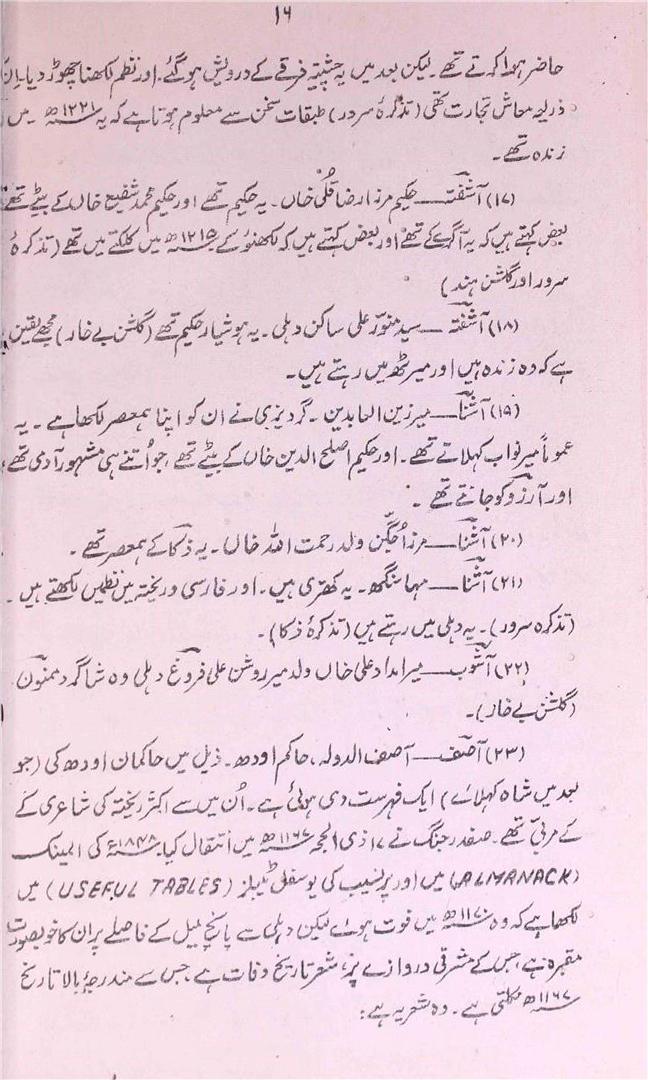 ۱۶
حاضر ہوا کرتے تھے۔ لیکن بعد میں یہ چشتیہ فرقے کے درویش ہو گئے۔ اور نظم لکھنا چھوڑ دیا۔ اِن
ذریعہ معاش تجارت تھی (تذکرۂ سرور) طبقات سخن سے معلوم ہوتا ہے کہ یہ ۱۲۲۱ھ میں
زندہ تھے۔
(۱۷) آشفتہ — حکیم مرزا رضا قُلی خاں۔ یہ حکیم تھے اور حکیم محمد شفیع خاں کے بیٹے تھے
بعض کہتے ہیں کہ یہ آگرے کے تھے اور بعض کہتے ہیں کہ لکھنؤ کے ۱۲۱۵ھ میں کلکتے میں تھے (تذکرۂ
سرور اور گلشن ہند)
(۱۸) آشفتہ — سید منوّر علی ساکن دہلی۔ یہ ہوشیار حکیم تھے (گلشن بے خار) مجھے یقین
ہے کہ وہ زندہ ہیں اور میرٹھ میں رہتے ہیں۔
(۱۹) آشنا — میر زین العابدین۔ گردیزی نے ان کو اپنا ہمعصر لکھا ہے۔ یہ
عموماً میر نواب کہلاتے تھے۔ اور حکیم اصلح الدین خاں کے بیٹے تھے، جو اُتنے ہی مشہور آدمی تھے
اور آرزو کو جانتے تھے۔
(۲۰) آشنا — مرزا جگن ولد رحمت اللہ خاں۔ یہ ذکا کے ہمعصر تھے۔
(۲۱) آشنا — مہا سنگھ۔ یہ کھتری ہیں۔ اور فارسی و ریختہ میں نظمیں لکھتے ہیں۔
(تذکرہ سرور)۔ یہ دہلی میں رہتے ہیں (تذکرۂ ذکا)۔
(۲۲) آشوب — میر امداد علی خاں ولد میر روشن علی فروغ دہلی وہ شاگرد ممنون
(گلشن بے خار)۔
(۲۳) آصف — آصف الدولہ، حاکم اودھ۔ ذیل میں حاکمان اودھ کی (جو
بعد میں شاہ کہلائے) ایک فہرست دی ہوئی ہے۔ اُن میں سے اکثر ریختہ کی شاعری کے
کے مربّی تھے۔ صفدر جنگ نے ۱۷ ذی الحجہ ۱۱۶۷ھ میں انتقال کیا۔ ۱۸۴۸ء کی المینک
(ALMANACK) میں اور پرنسیب کی یوسفل ٹیبلز (USEFUL TABLES) میں
لکھا ہے کہ وہ ۱۱۷۰ھ میں فوت ہوئے لیکن دہلی سے پانچ میل کے فاصلے پر ان کا خوبصورت
مقبرہ ہے، جس کے مشرقی دروازے پر، شعر تاریخ وفات ہے، جس سے مندرجۂ بالا تاریخ
۱۱۶۷ھ نکلتی ہے۔ وہ شعر یہ ہے: